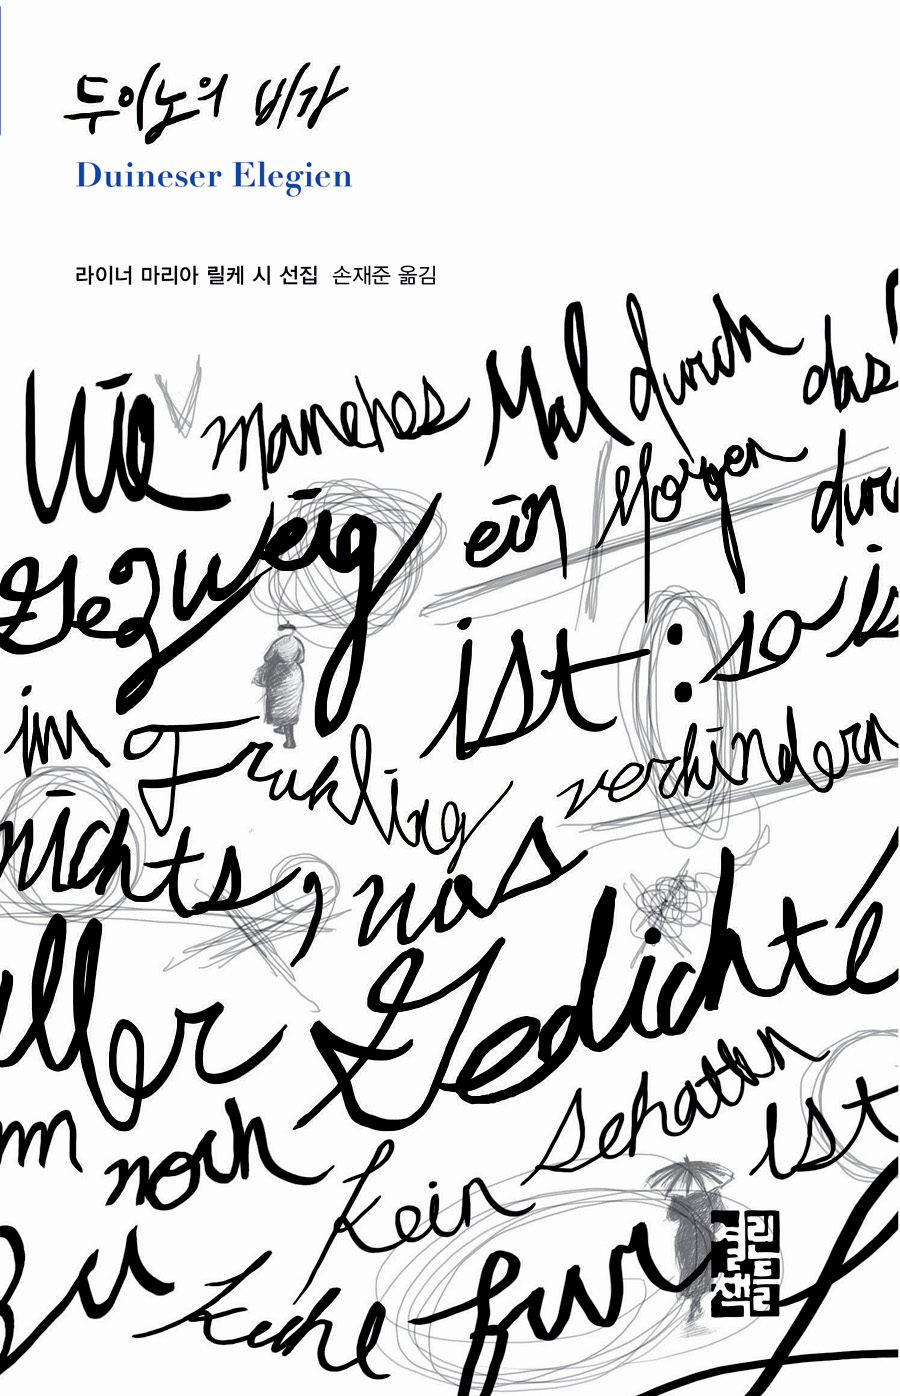 두이노의 비가
Duineser Elegien
라이너 마리아 릴케 시 선집 손재준 옮김
Wie manches Mal durch das
Gezweig ein Morgen durc
ist : so is
im Fruhling verhindern
nichts, das
aller Gedichte
nn noch kein Schatten ist
zu kuhl fur
열린책들